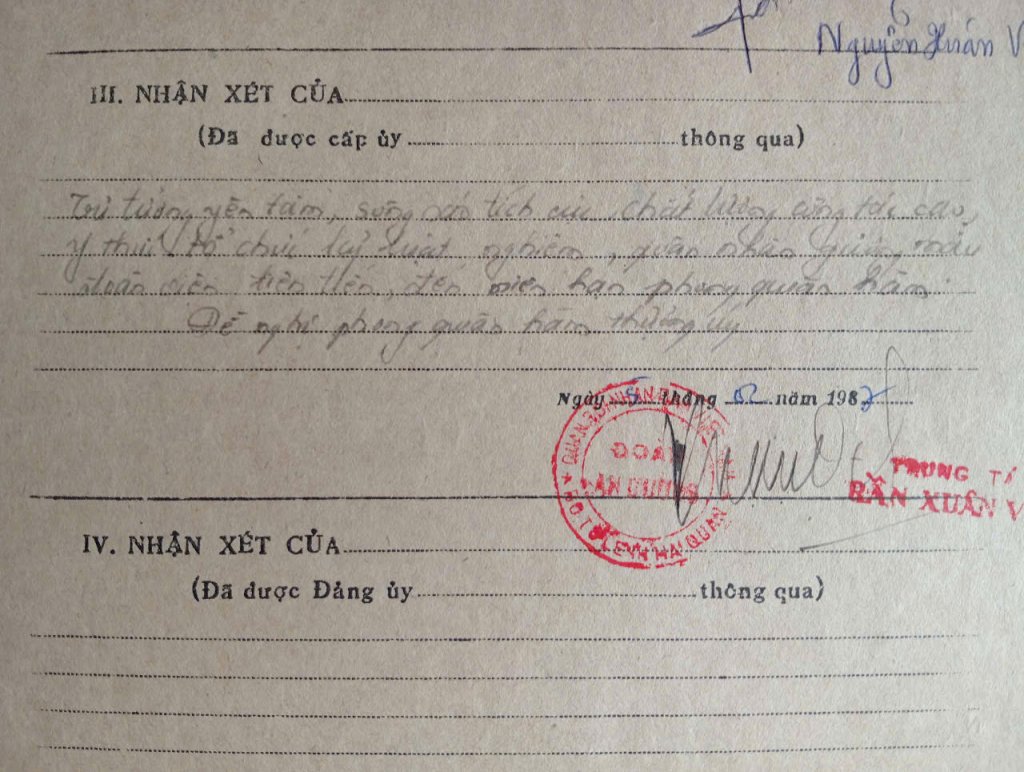 Nguyễn Xuân V
III. NHẬN XÉT CỦA
(Đã được cấp ủy thông qua)
Tư tưởng yên tâm, sống tích cực chất lượng công tác cao,
ý thức tổ chức kỷ luật nghiêm, quân nhân
toàn diện tiên tiến, đến niên hạn phong quân hàm.
Đề nghị phong quân hàm thượng úy
Ngày 5 tháng 02 năm 1987
QUÂN ĐỘI NHÂN DÂN
ĐOÀN
BỘ TƯ LỆNH HẢI QUÂN
TRUNG TÁ
RẦN XUÂN V
IV. NHẬN XÉT CỦA
(Đã được Đảng ủy thông qua)